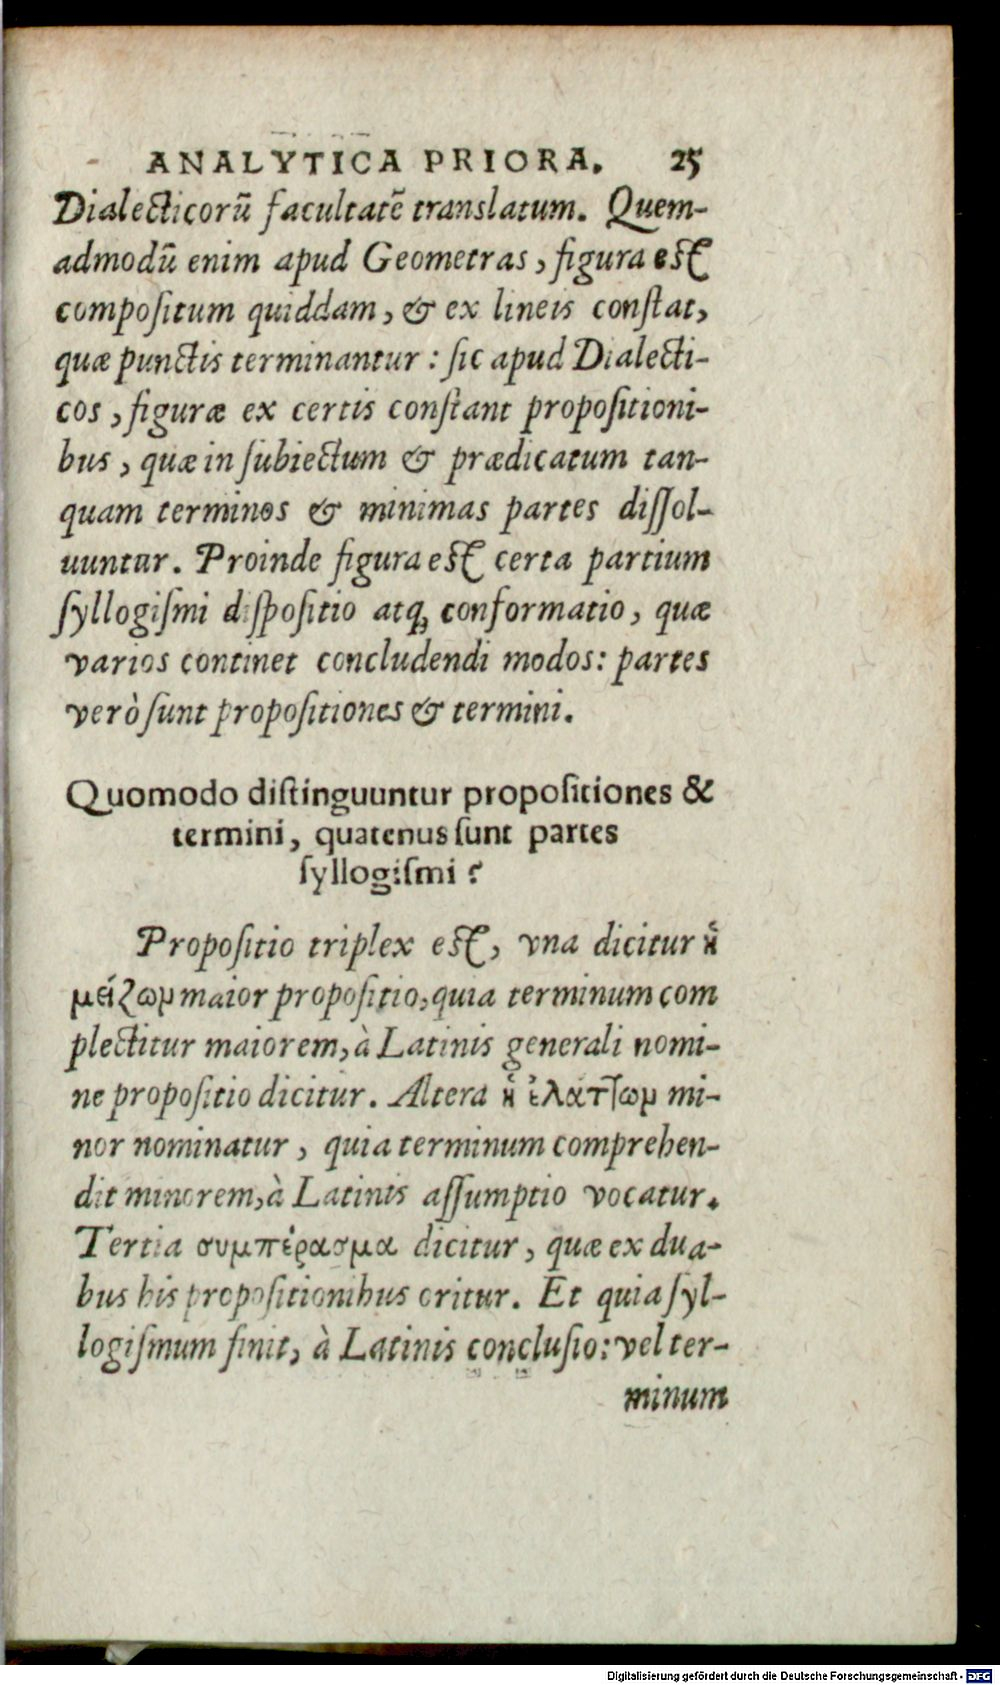 ANALYTICA PRIORA. 25
Dialecticorũ facultatẽ translatum. Quem-
admodũ enim apud Geometras, figura est
compositum quiddam, & ex lineis constat,
quæ punctis terminantur: sic apud Dialecti-
cos, figuræ ex certis constant propositioni-
bus, quæ in subiectum & prædicatum tan-
quam terminos & minimas partes dissol-
uuntur. Proinde figura est certa partium
syllogismi dispositio atq; conformatio, quæ
varios continet concludendi modos: partes
verò sunt propositiones & termini.
Quomodo distinguuntur propositiones &
termini, quatenus sunt partes
syllogismi?
Propositio triplex est, vna dicitur ἡ
μείζωμ maior propositio, quia terminum com
plectitur maiorem, à Latinis generali nomi-
ne propositio dicitur. Altera ἡ ἐλάτ]ωμ mi-
nor nominatur, quia terminum comprehen-
dit minorem, à Latinis assumptio vocatur.
Tertia συμπέρασμα dicitur, quæ ex dua-
bus his propositionibus oritur. Et quia syl-
logismum finit, à Latinis conclusio: vel ter-
minum
Digitalisierung gefördert durch die Deutsche Forschungsgemeinschaft - DFG